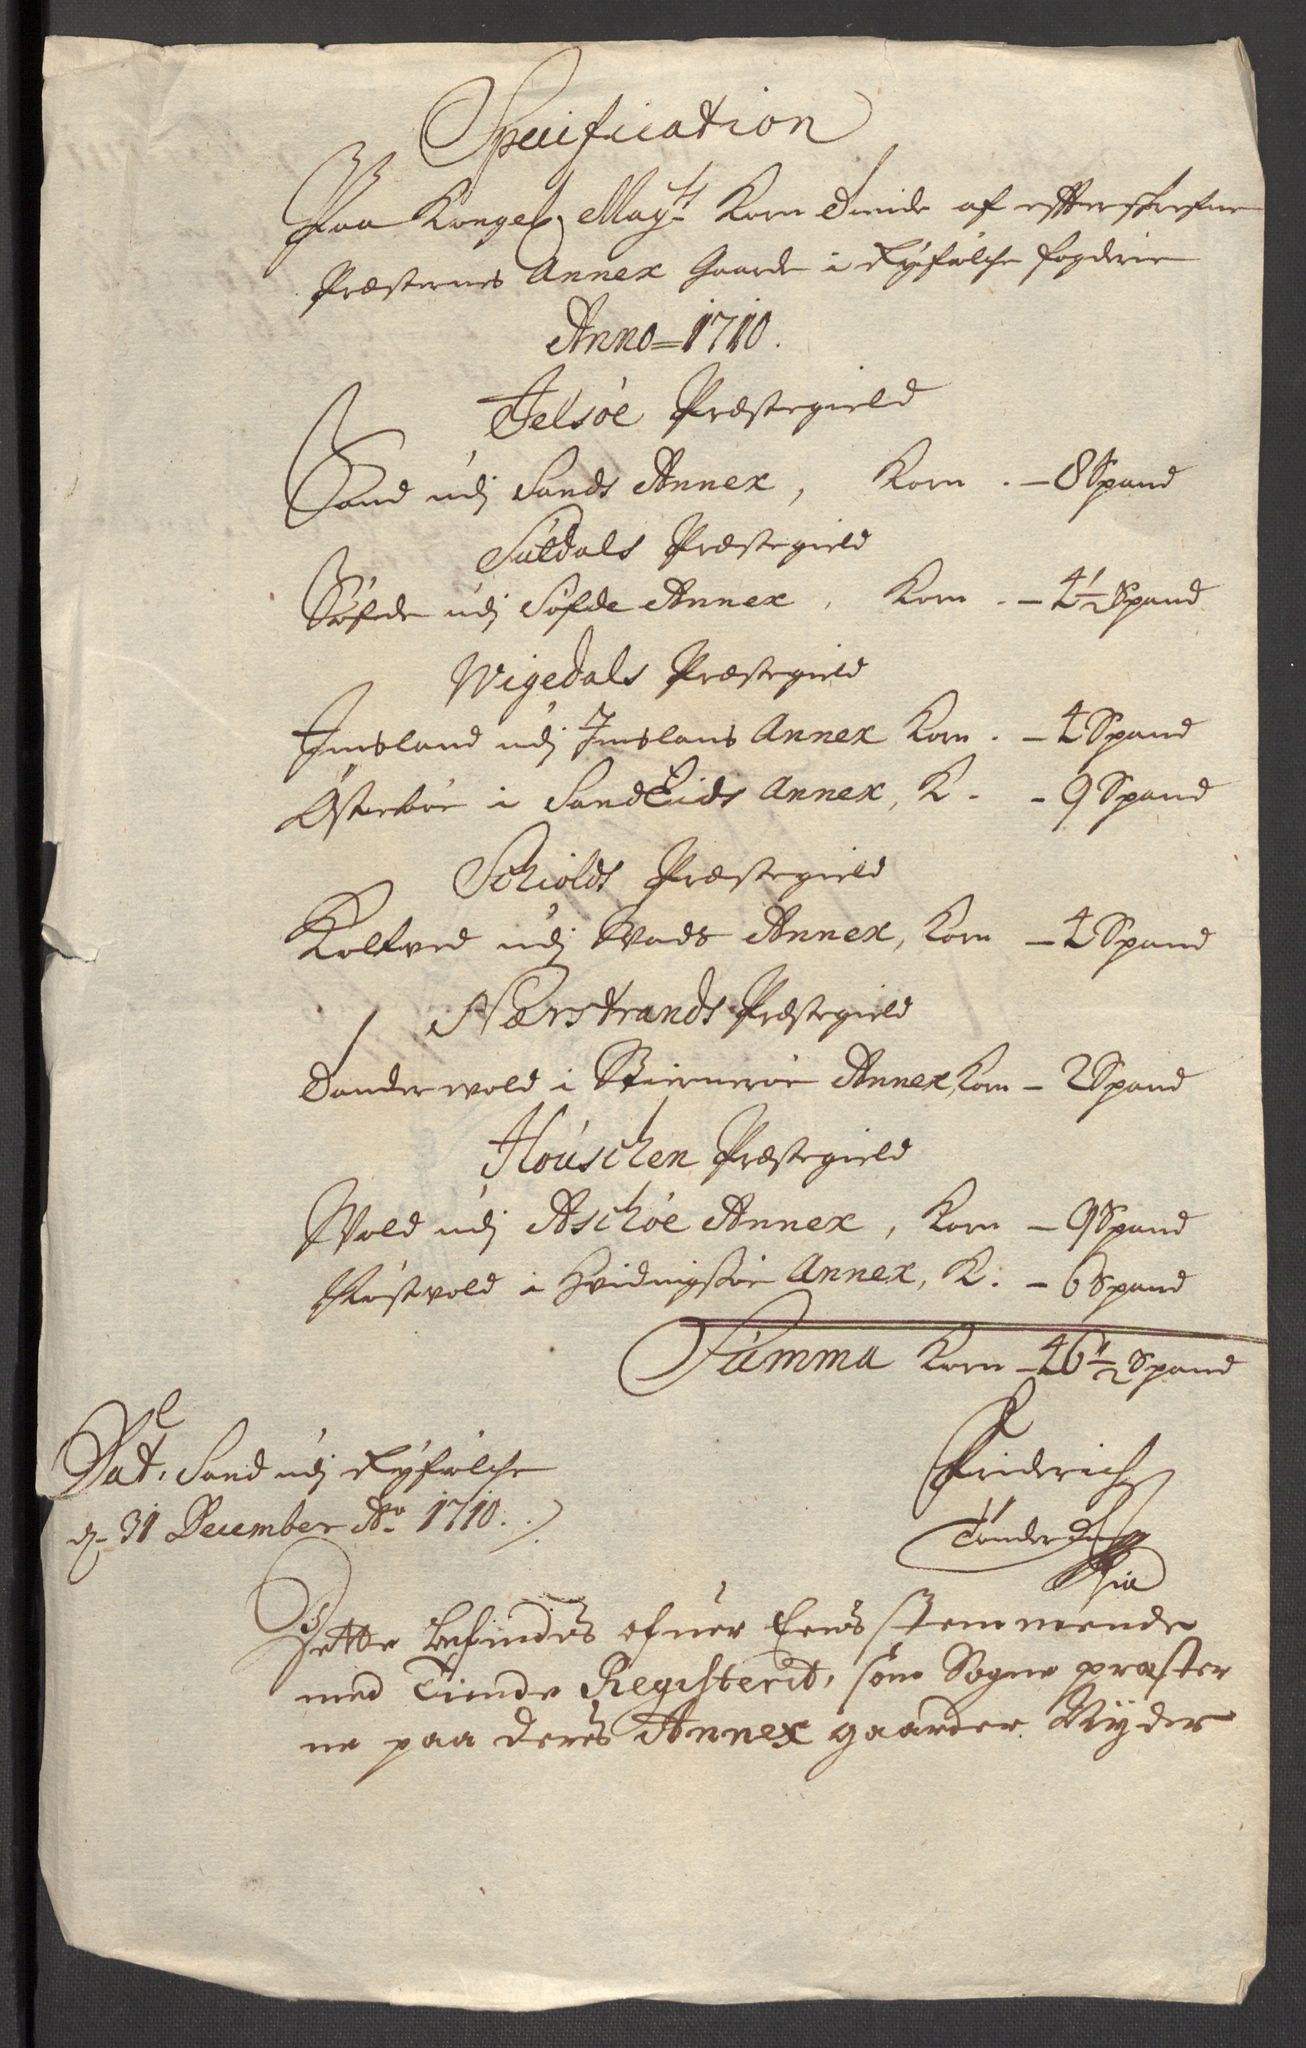 Specification
Paa Kongel May:ts Korn Tiende af efterskrefne
Præsternes Annex Gaarde i Ryfølche fogderie
Anno = 1710.
Jelsöe Præstegield
Sand udj Sands Annex, Korn . – 8 Spand
Suldals Præstegield
Söfde udj Söfde Annex, Korn . – 4½ Spand
Wigedals Præstegield
Imsland udj Imslans Annex Korn . – 4 Spand
Østeböe i SandEids Annex, K . – 9 Spand
Schiolds Præstegield
Koltved udj Wads Annex, Korn – 4 Spand
Nærstrands Præstegield
Sanderwold i Stiernerøe Annex, Korn – 2 Spand
Houschen Præstegield
Wold udj Aschöe Annex, Korn – 9 Spand
i Hvidingsøe Annex, K: – 6 Spand
Summa Korn – 46½ Spand
Dat: Sand udj Ryfølche
d. 31 December Ao 1710.
Friderich
Tönder
Dette befindes ofuer Eens stemmende
med Tiende Registerit, som Sogne præster
ne paa deres Annex gaarder Nyder